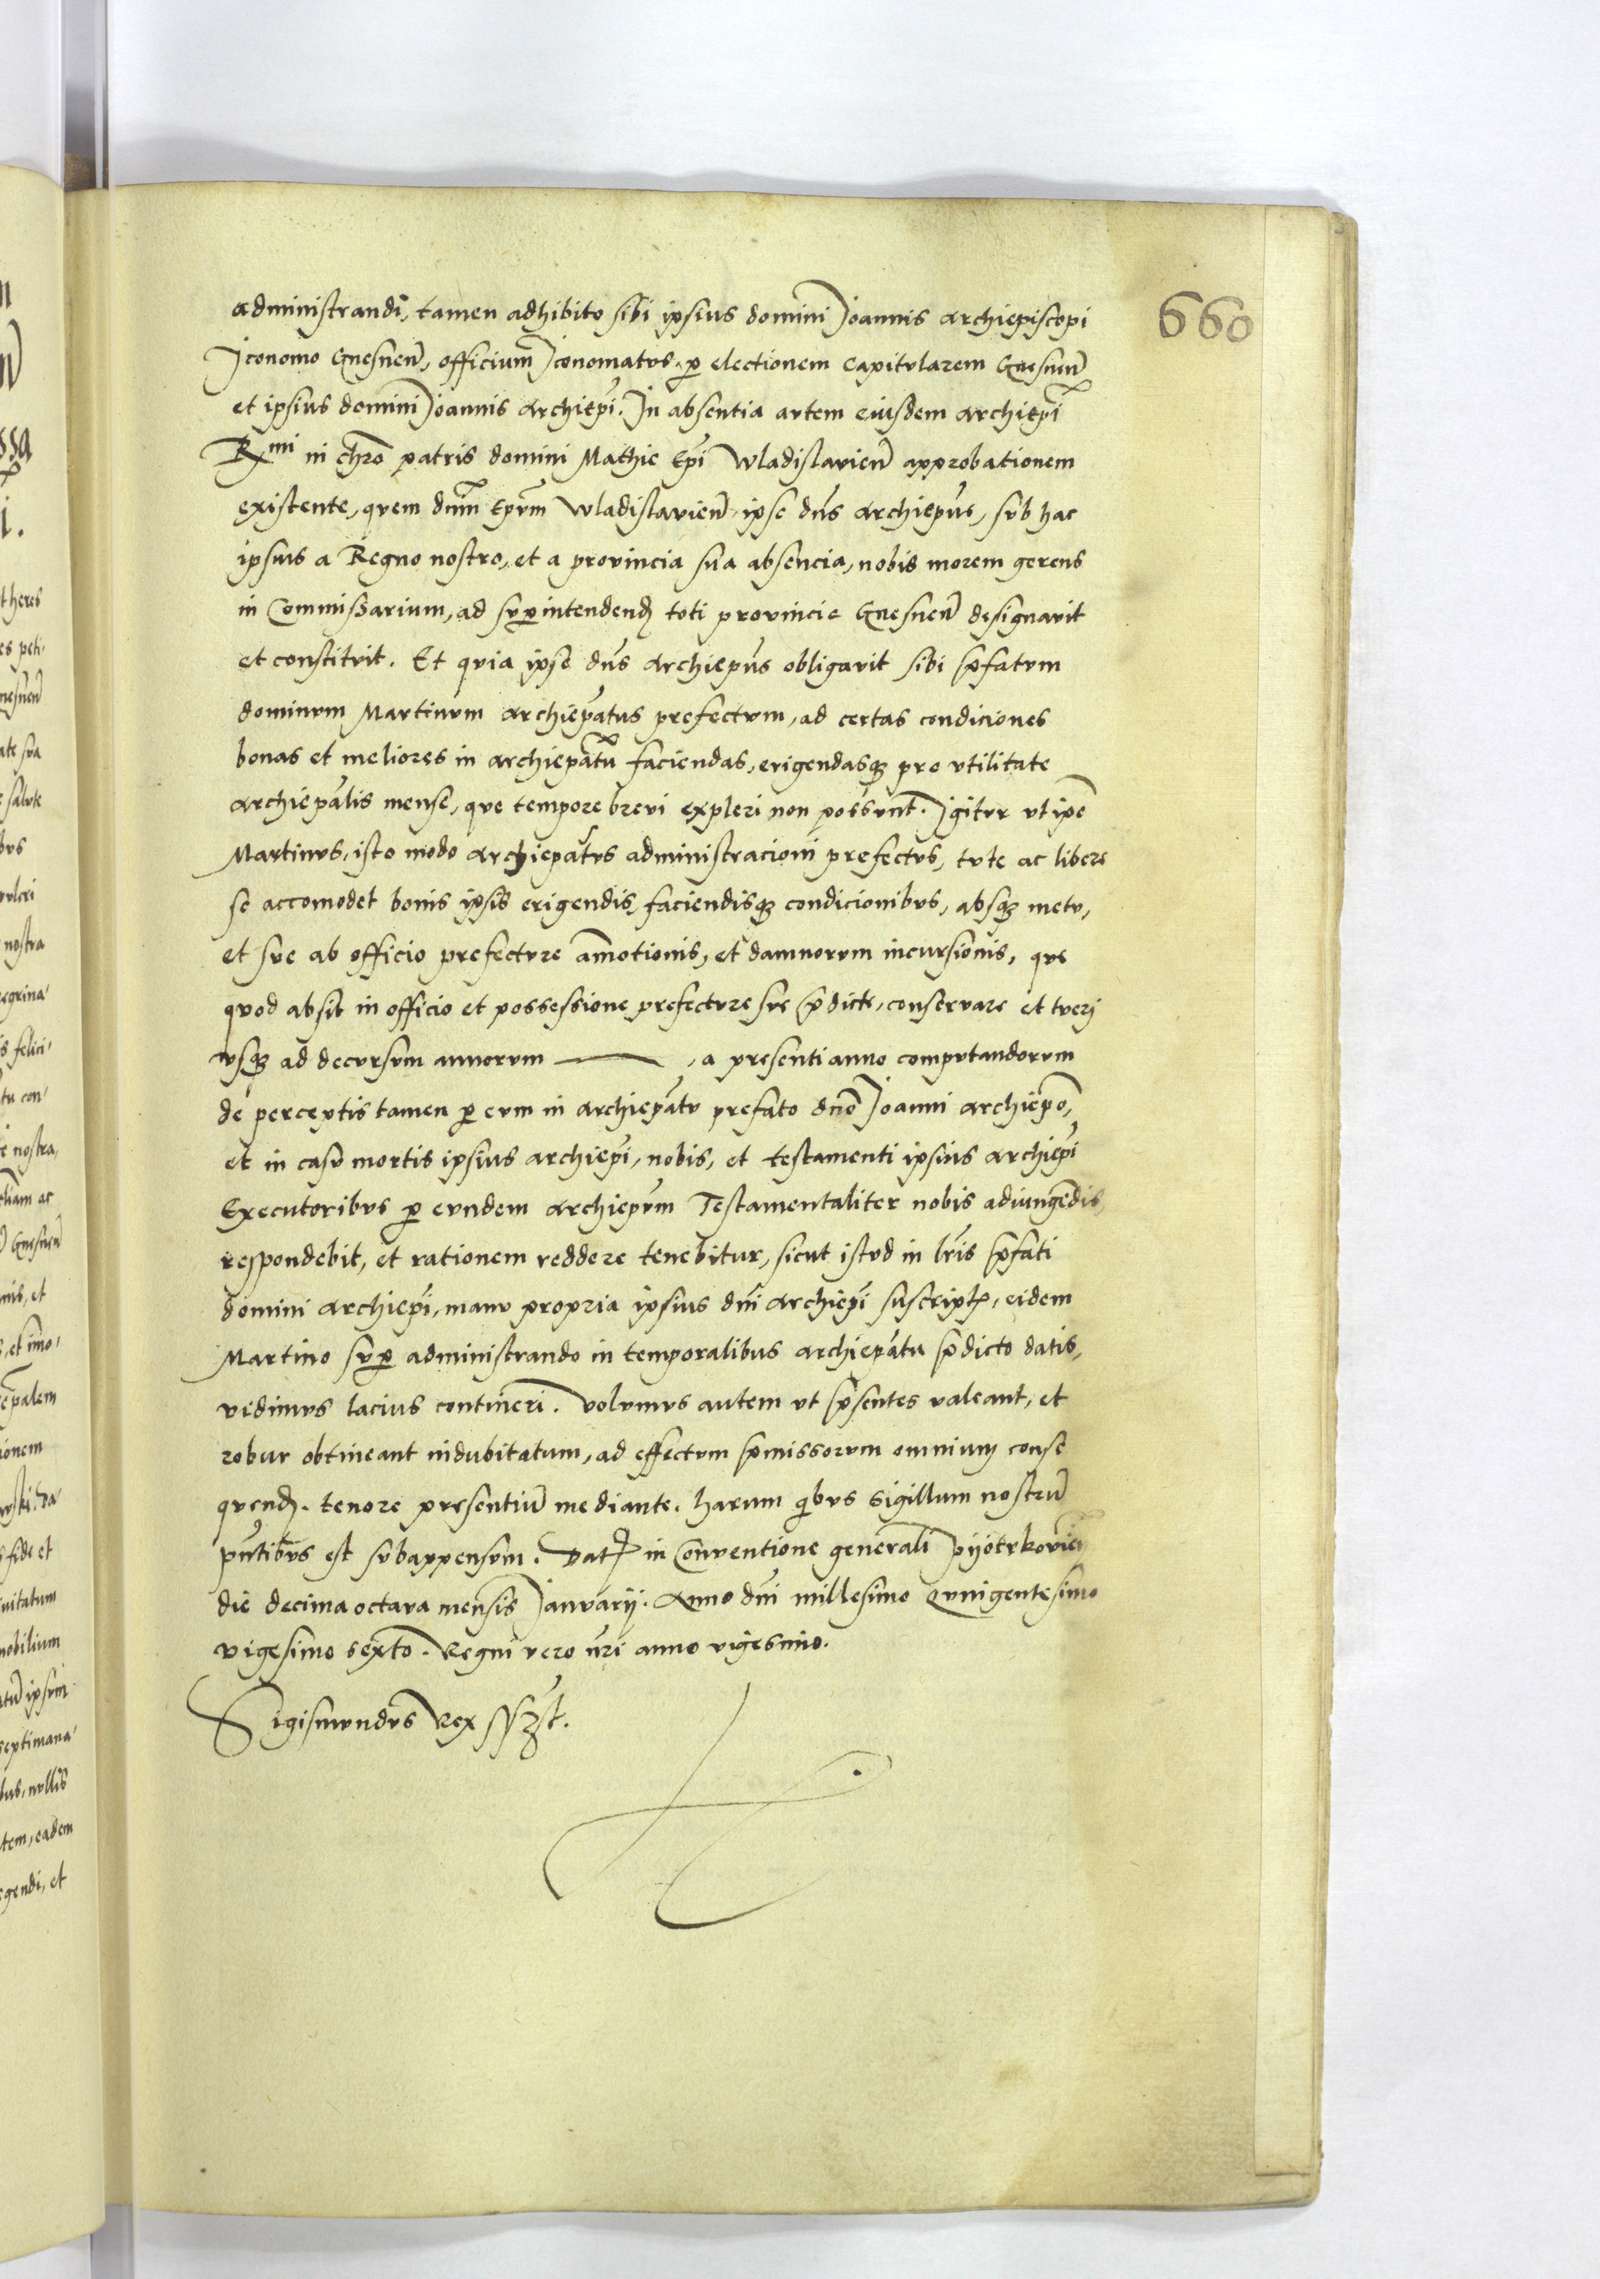 660
administrandi, tamen adhibito sibi ipsius domini Joannis archiepiscopi
Jconomo Gnesneñ, officium Jconomatvs, ꝑ electionem capitvlarem Gnesneñ
et ipsius domini Joannis archiep̃i. In absentia avtem eiusdem archiep̃i
Rmi in chr̃o patris domini Mathie Ep̃i Wladislavieñ approbationem
existente, qvem dñm Ep̃vm Wladislavieñ, ipse dñs archiep̃us, svb hac
ipsius a Regno nostro, et a provincia sua absencia, nobis morem gerens
in Commissarium, ad sꝟꝑintendenđ toti provincie Gnesneñ designavit
et constitvit. Et qvia ipse dñs archiep̃us obligavit sibi p̃fatvm
dominvm Martinvm archiep̃atus prefectvm, ad certas condiciones
bonas et meliores in archiep̃atu faciendas, erigendasqꝫ pro vtilitate
archiep̃alis mense, qve tempore brevi expleri non possvnt. Igitvr vt ip̃e
Martinvs, isto modo archiep̃atvs administracioni prefectvs, tvte ac libere
se accomodet bonis ipsis erigendis, faciendisqꝫ condicionibvs, absqꝫ metv,
et sve ab officio prefectvre am̃otionis, et damnorvm incvrsionis, qve
qvod absit in officio et possessione prefectvre sve p̃dicte, conservare et tveri
vsqꝫ ad decvrsvm annorvm ——— , a presenti anno compvtandorvm
de perceptis tamen ꝑ evm in archiep̃atv prefato dño Joanni archiep̃o,
et in casv mortis ipsius archiep̃i, nobis, et testamenti ipsius archiep̃i
Executoribvs ꝑ evndem archiep̃vm Testamentaliter nobis adiungẽdis,
respondebit, et rationem reddere tenebitur, sicut istvd in lr̃is p̃fati
domini archiep̃i, manv propria ipsius dñi archiep̃i suscript̃, eidem
Martino sꝟꝑ administrando in temporalibus archiep̃atu p̃dicto datis,
vidimvs lacius contineri. Volvmvs autem vt p̃sentes valeant, et
robur obtineant indubitatum, ad effectvm p̃missorvm omnium conse
qvenđ. tenore presentiũ mediante. harum qibvs sigillum nostrũ
pñtibvs est svbappensvm. Dat̃ in Conventione generali Pyotrkovieñ
die decima octava mensis Janvarij. Anno dñi millesimo Qvingentesimo
vigesimo sexto. Regni vero nr̃i anno vigesimo.
Sigismvndvs Rex sst.